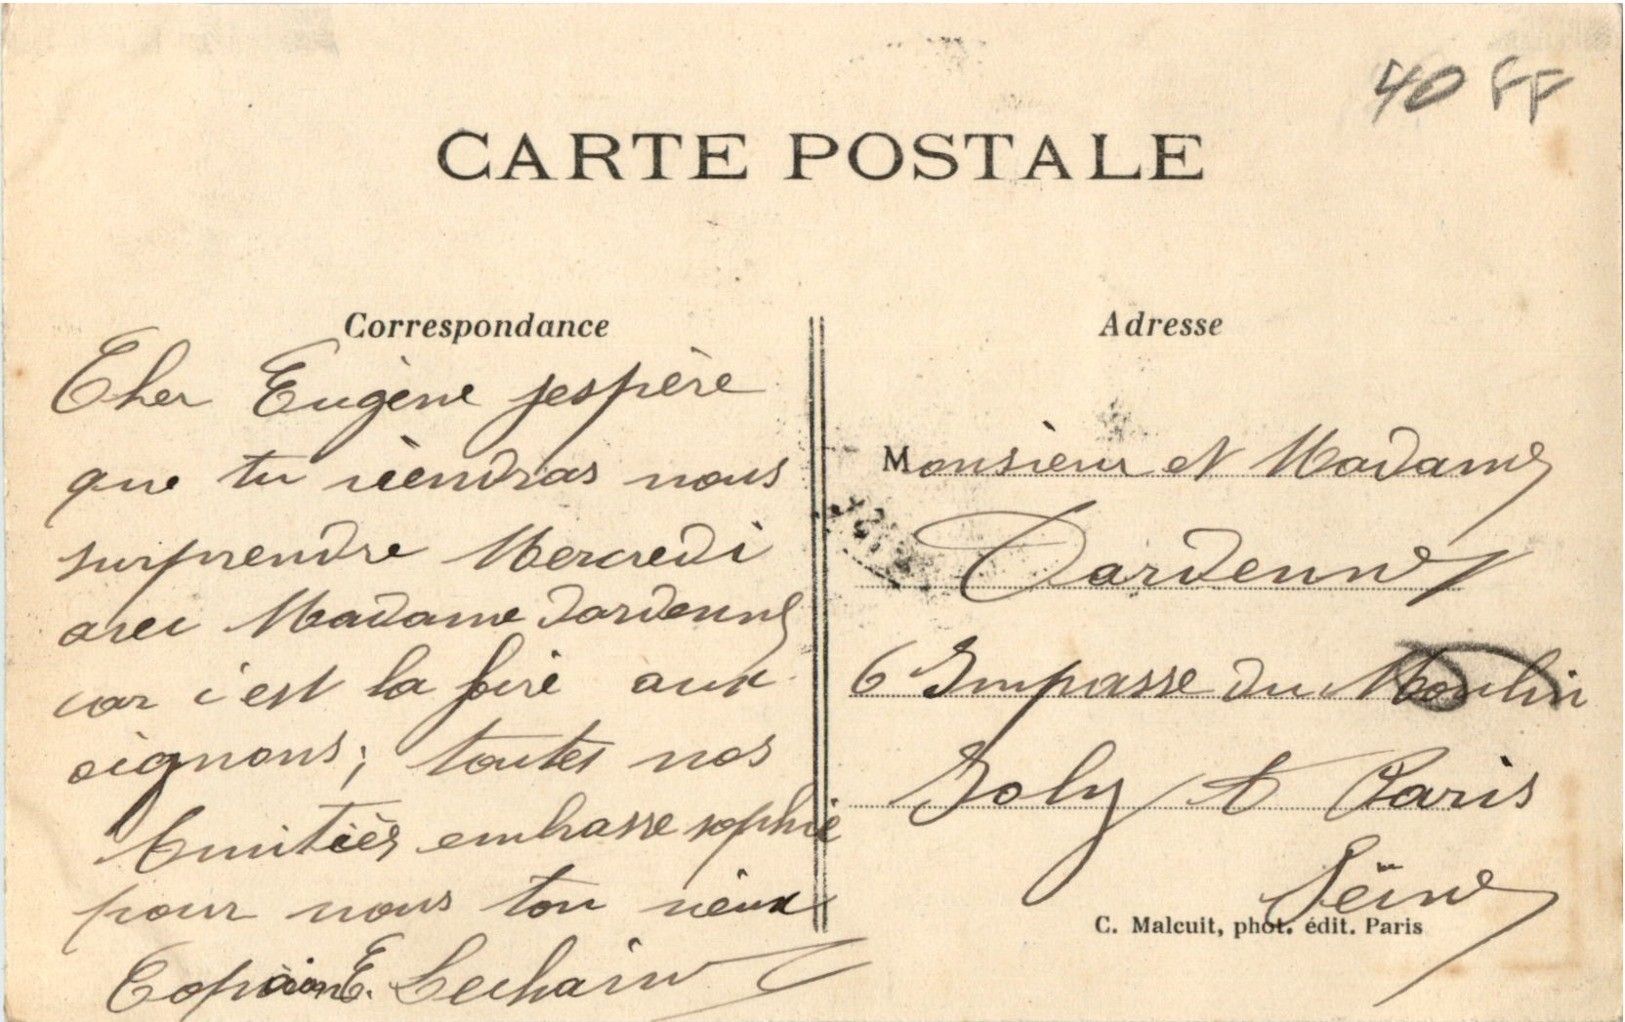 40 FF
CARTE POSTALE
Correspondance
Cher Eugène jespère
que tu viendras nous
surprendre Mercredi
avec Madame Dardenne
car c'est la foire aux
oignons; toutes nos
Amitiés embrasse sophie
pour nous ton vieux
Copain E.
Adresse
Monsieur et Madame
Dardenne
6 Impasse du Moulin
Joly à Paris
Seine
C. Malcuit, phot. édit. Paris